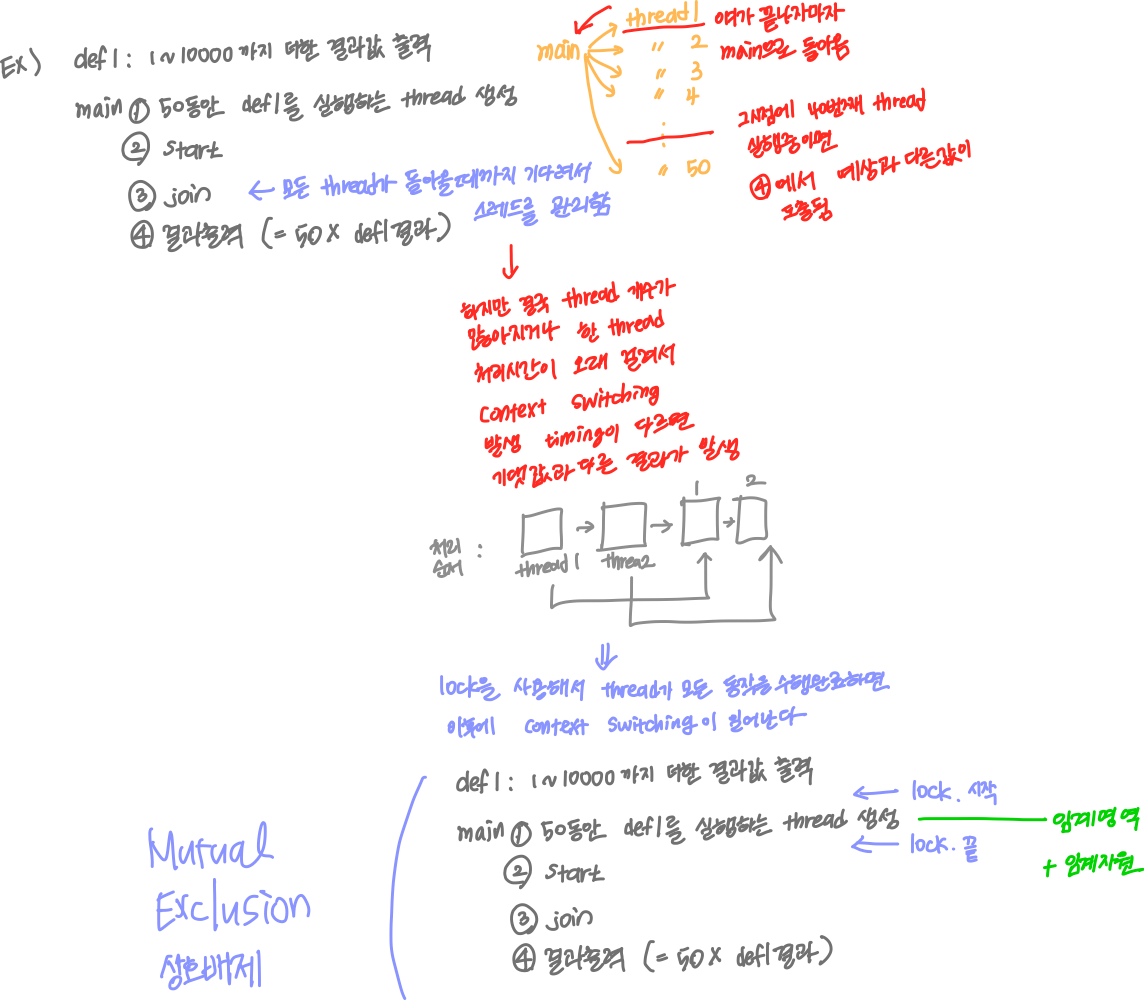 EX) def1 : 1~10000까지 더한 결과값 출력
main ① 50동안 def1를 실행하는 thread 생성
② start
③ join ← 모든 thread가 돌아올때까지 기다려서
스레드를 관리함
④ 결과출력 (= 50 X def1결과)
main
thread 1
〃 2
〃 3
〃 4
⋮
〃 50
여가 끝나자마자
main으로 돌아옴
그시점에 40번째 thread
실행중이면
④에서 예상과 다른값이
도출됨
하지만 결국 thread 개수가
많아지거나 한 thread
처리시간이 오래 걸려서
context switching
발생 timing이 다르면
기댓값과 다른 결과가 발생
처리
순서 :
thread 1
threa2
1
2
lock을 사용해서 thread가 모든 동작을 수행완료하면
이후에 context switching이 일어난다
def1 : 1~10000까지 더한 결과값 출력
← lock. 시작
main ① 50동안 def1를 실행하는 thread 생성
임계영역
← lock. 끝
+ 임계자원
② start
③ join
④ 결과출력 (= 50 X def1결과)
Mutual
Exclusion
상호배제